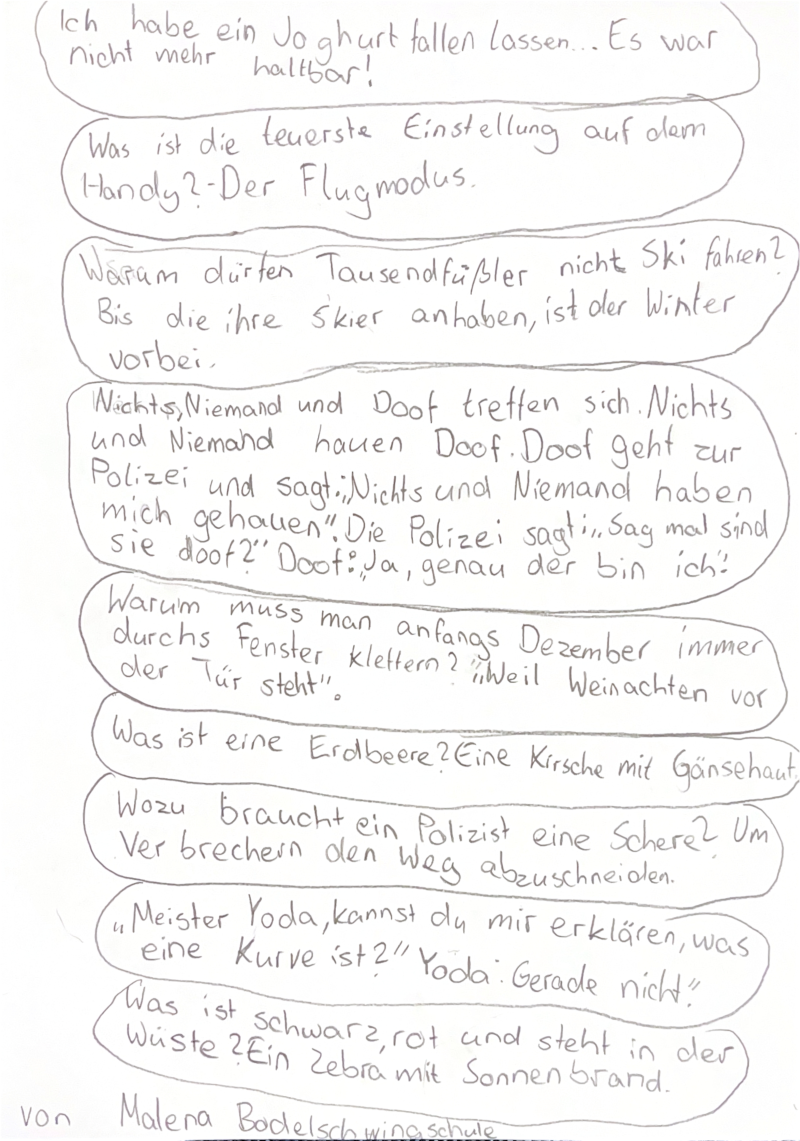 Ich habe ein Joghurt fallen lassen... Es war
nicht mehr haltbar!
Was ist die teuerste Einstellung auf dem
Handy?-Der Flugmodus.
Warum dürfen Tausendfüßler nicht Ski fahren?
Bis die ihre Skier anhaben, ist der Winter
vorbei.
Nichts, Niemand und Doof treffen sich. Nichts
und Niemand hauen Doof. Doof geht zur
Polizei und sagt:„Nichts und Niemand haben
mich gehauen". Die Polizei sagt:„Sag mal sind
sie doof?" Doof:„Ja, genau der bin ich!"
Warum muss man anfangs Dezember immer
durchs Fenster klettern? „Weil Weinachten vor
der Tür steht".
Was ist eine Erdbeere? Eine Kirsche mit Gänsehaut.
Wozu braucht ein Polizist eine Schere? Um
Verbrechern den Weg abzuschneiden.
„Meister Yoda, kannst du mir erklären, was
eine Kurve ist?" Yoda: Gerade nicht!"
Was ist schwarz, rot und steht in der
Wüste? Ein Zebra mit Sonnenbrand.
von Malena Bodelschwingschule